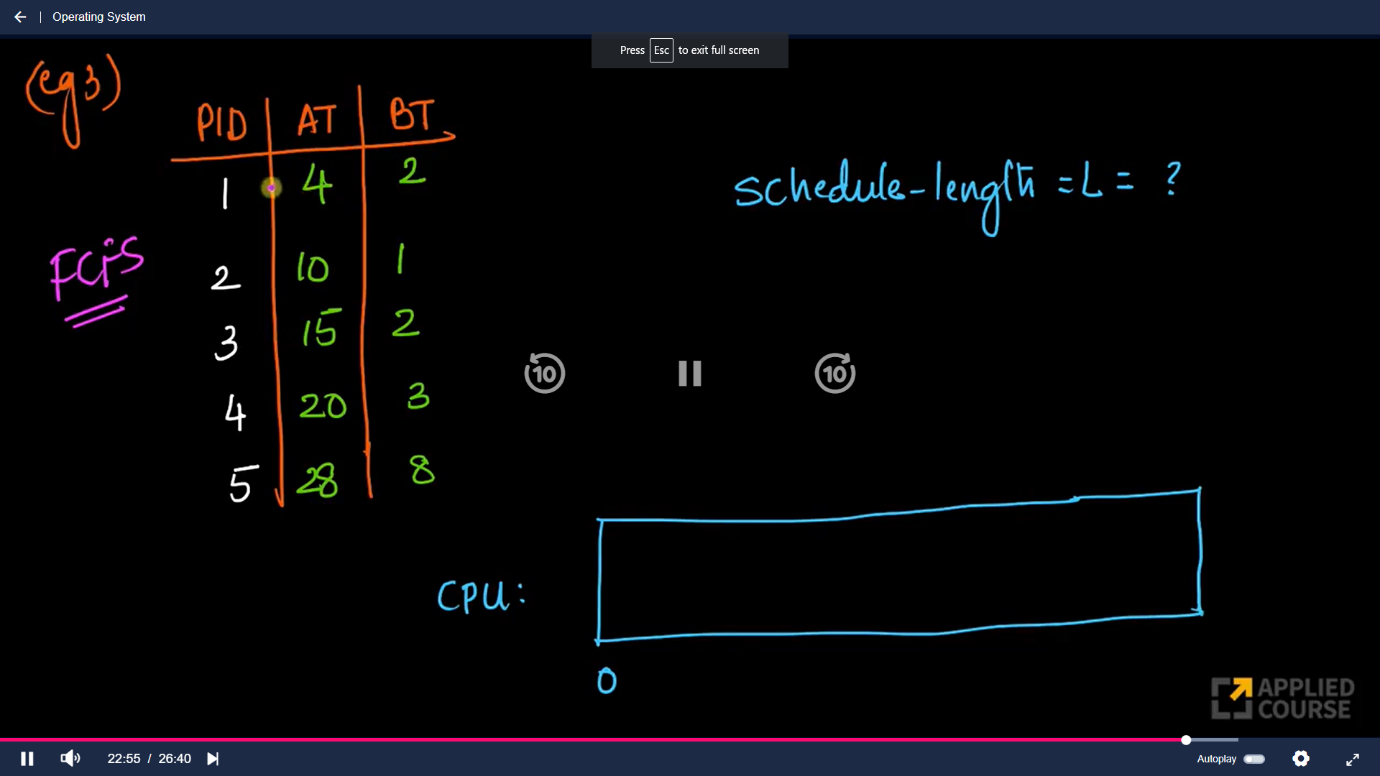 Operating System
Press Esc to exit full screen
(eg3)
PID AT BT
1 4 2
2 10 1
3 15 2
4 20 3
5 28 8
FCFS
schedule-length = L = ?
10 10
CPU:
0
APPLIED
COURSE
22:55 / 26:40
Autoplay